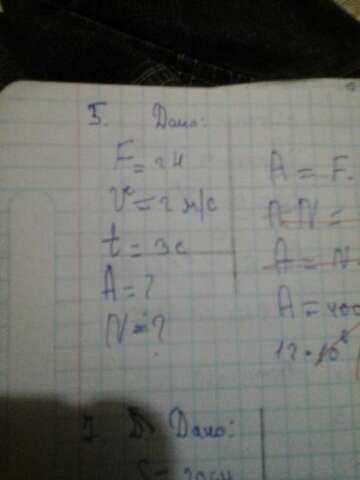 5. Дано:
F = 2 Н
V = 2 м/с
t = 3 с
A = ?
N = ?
A = F.
A N =
A = N
A = 400
12 · 10
Дано: